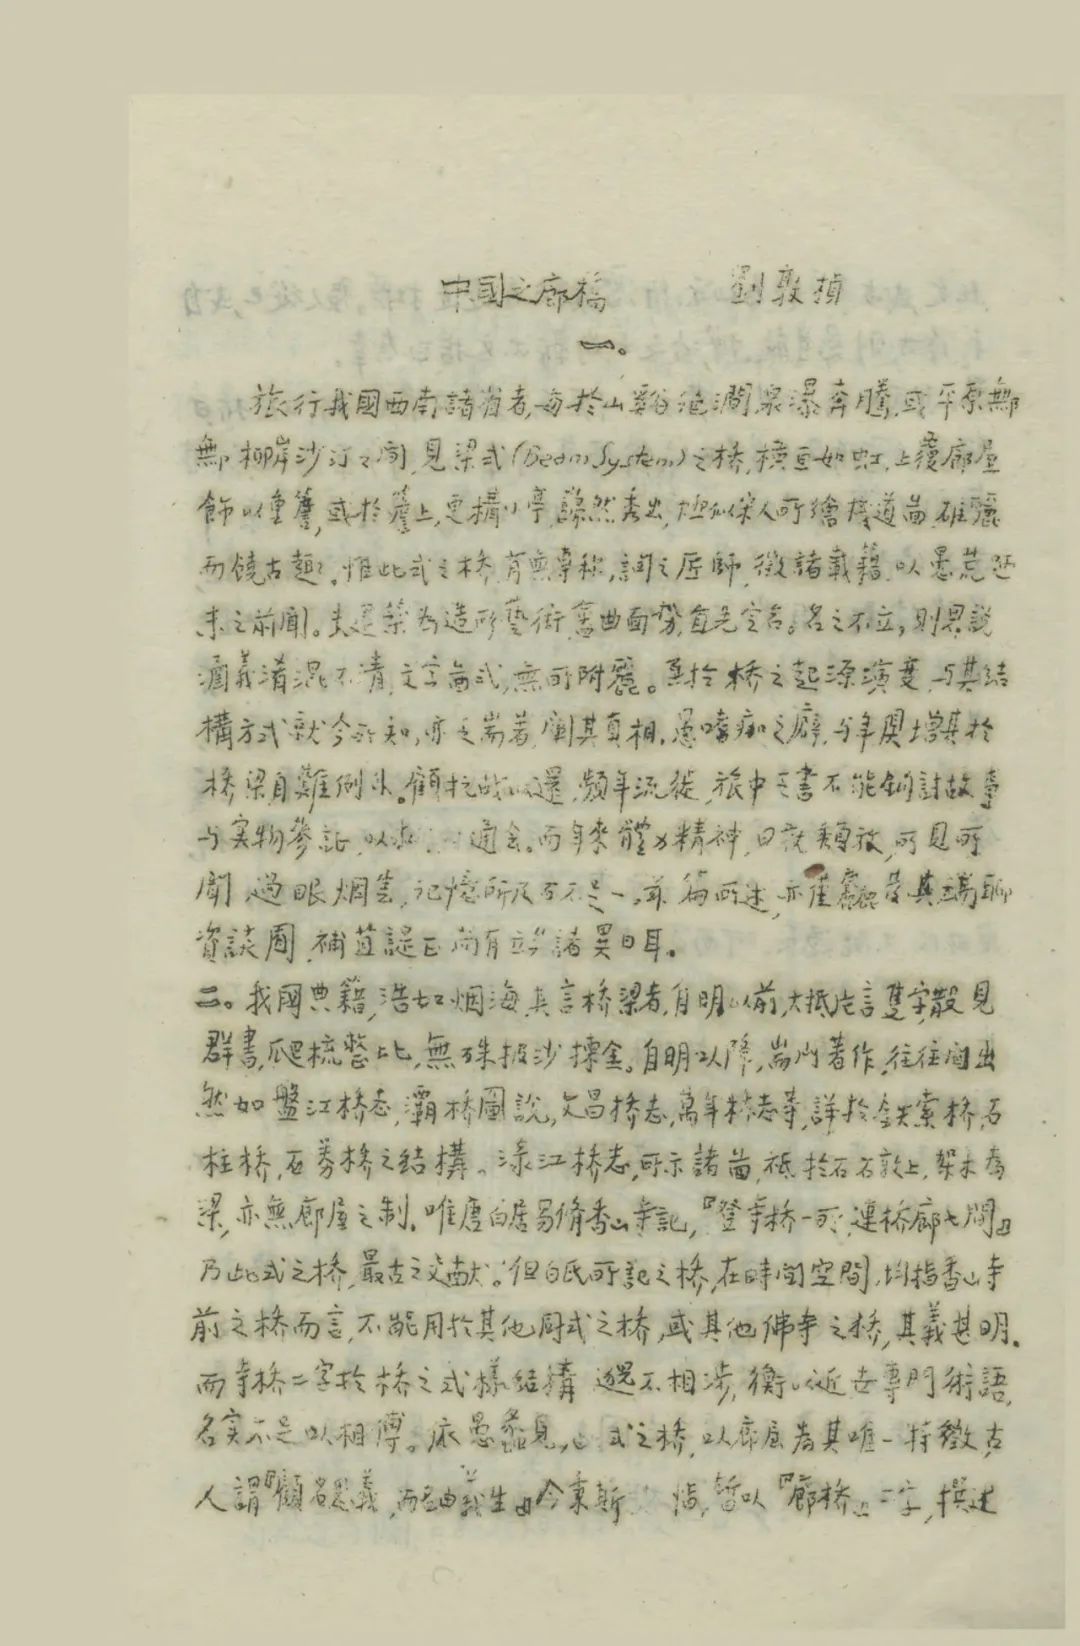 中國之廊橋 劉敦楨
一。
旅行我國西南諸省者,每於山谿絶澗,泉瀑奔騰,或平原無
柳岸沙汀之間,見梁式(Beam System)之桥,橫亘如虹,上覆廊屋
飾以重簷,或於簷上,更構小亭,然秀出,宋人所繪棧道啚,雄麗
而饒古趣。惟此式之桥,專称,詢之匠師,徵諸載藉,以愚荒
未之前聞。築為造形藝術,首先定名。名之不立,則界說
涵義淆混不清,文字啚式,無所附麗。至於桥之起源演變,与其結
構方式就今所知,亦乏耑著,闡其真相。愚嗜痂之癖,与年俱增其於
桥梁自難例外。顧抗战以還,頻年流徙,旅中乏書不能鈎討故事
与実物參証,以通会。而年來體力精神,日就頹放,所見所
聞過眼烟雲,記憶所及百不足一。篇所述,亦僅其端聊
資談囿,補苴諟正尚有諸異日耳。
二。我國典籍,浩如烟海,其言桥梁者,自明以前,大抵片言隻字,散見
群書,爬梳整比,無殊披沙揀金。自明以降,耑門著作,往往間出
然如盤江桥志,灞桥圖說,文昌桥志,萬年桥志等,詳於鉄索桥,石
柱桥,石劵桥之結構。淥江桥志,所示諸啚,祇於石礅上,架木為
梁,亦無廊屋之制。唯唐白居易脩香山寺記,『登寺桥一所,連桥廊七間』
乃此式之桥,最古之文献。但白氏所記之桥,在時间空間,均指香山寺
前之桥而言,不能用於其他同式之桥,或其他佛寺之桥,其義甚明。
而寺桥二字於桥之式樣結構,邈不相涉,衡以近世專門術語,
名実不足以相傅。依愚蠡見,此式之桥,以廊屋為其唯一特徵,古
人謂『顧名思義,而名由義生』今秉斯恉,暫以『廊桥』二字,撰述